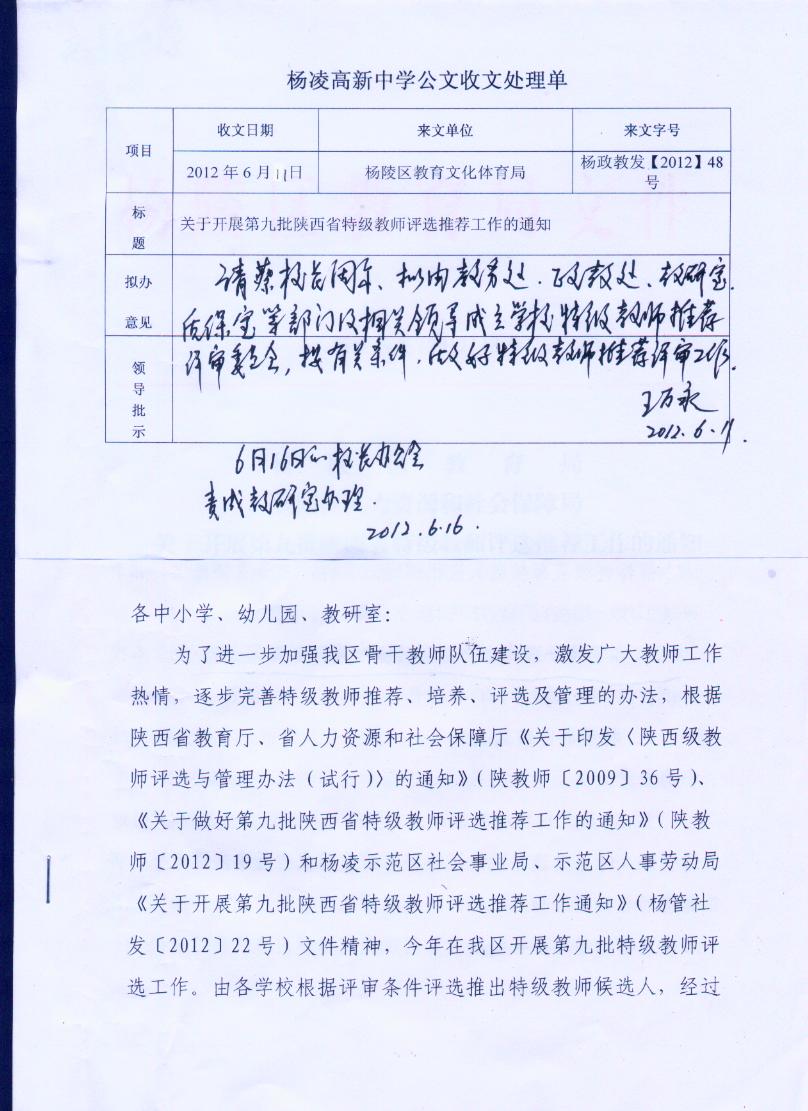 杨凌高新中学公文收文处理单
项目 收文日期 来文单位 来文字号
2012 年 6 月 11 日 杨陵区教育文化体育局 杨政教发【2012】48号
标题 关于开展第九批陕西省特级教师评选推荐工作的通知
拟办意见
请蔡校长阅示、拟由教务处、政教处、教研室、
质保室等部门及相关领导成立学校特级教师推荐
领导批示
评审委员会，按有关条件，做好特级教师推荐评审工作。
王万永
2012.6.11
6月16日 校长办公会
责成教研室办理.
2012.6.16.
各中小学、幼儿园、教研室：
为了进一步加强我区骨干教师队伍建设，激发广大教师工作
热情，逐步完善特级教师推荐、培养、评选及管理的办法，根据
陕西省教育厅、省人力资源和社会保障厅《关于印发〈陕西级教
师评选与管理办法（试行）〉的通知》（陕教师〔2009〕36 号）、
《关于做好第九批陕西省特级教师评选推荐工作的通知》（陕教
师〔2012〕19 号）和杨凌示范区社会事业局、示范区人事劳动局
《关于开展第九批陕西省特级教师评选推荐工作通知》（杨管社
发〔2012〕22 号）文件精神，今年在我区开展第九批特级教师评
选工作。由各学校根据评审条件评选推出特级教师候选人，经过